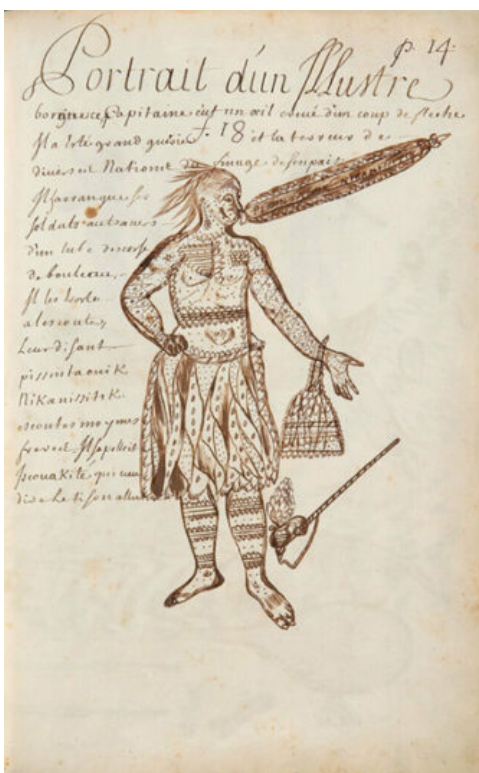 p. 14.
Portrait d'un Illustre
borgne ce Capitaine eut un œil crevé d'un coup de fleche
Il a été grand guerier et la terreur de
F. 18
diverses Nations du
Il harrangue ses
soldats au travers
d'un tube d'escorse
de bouleau,
Il les
a l'escouter
Leur disant
pissintaouik
Nikanissitik
escoutes moy mes
freres Il sapelloit
Iscouakité qui veut
dire Le tison allumé